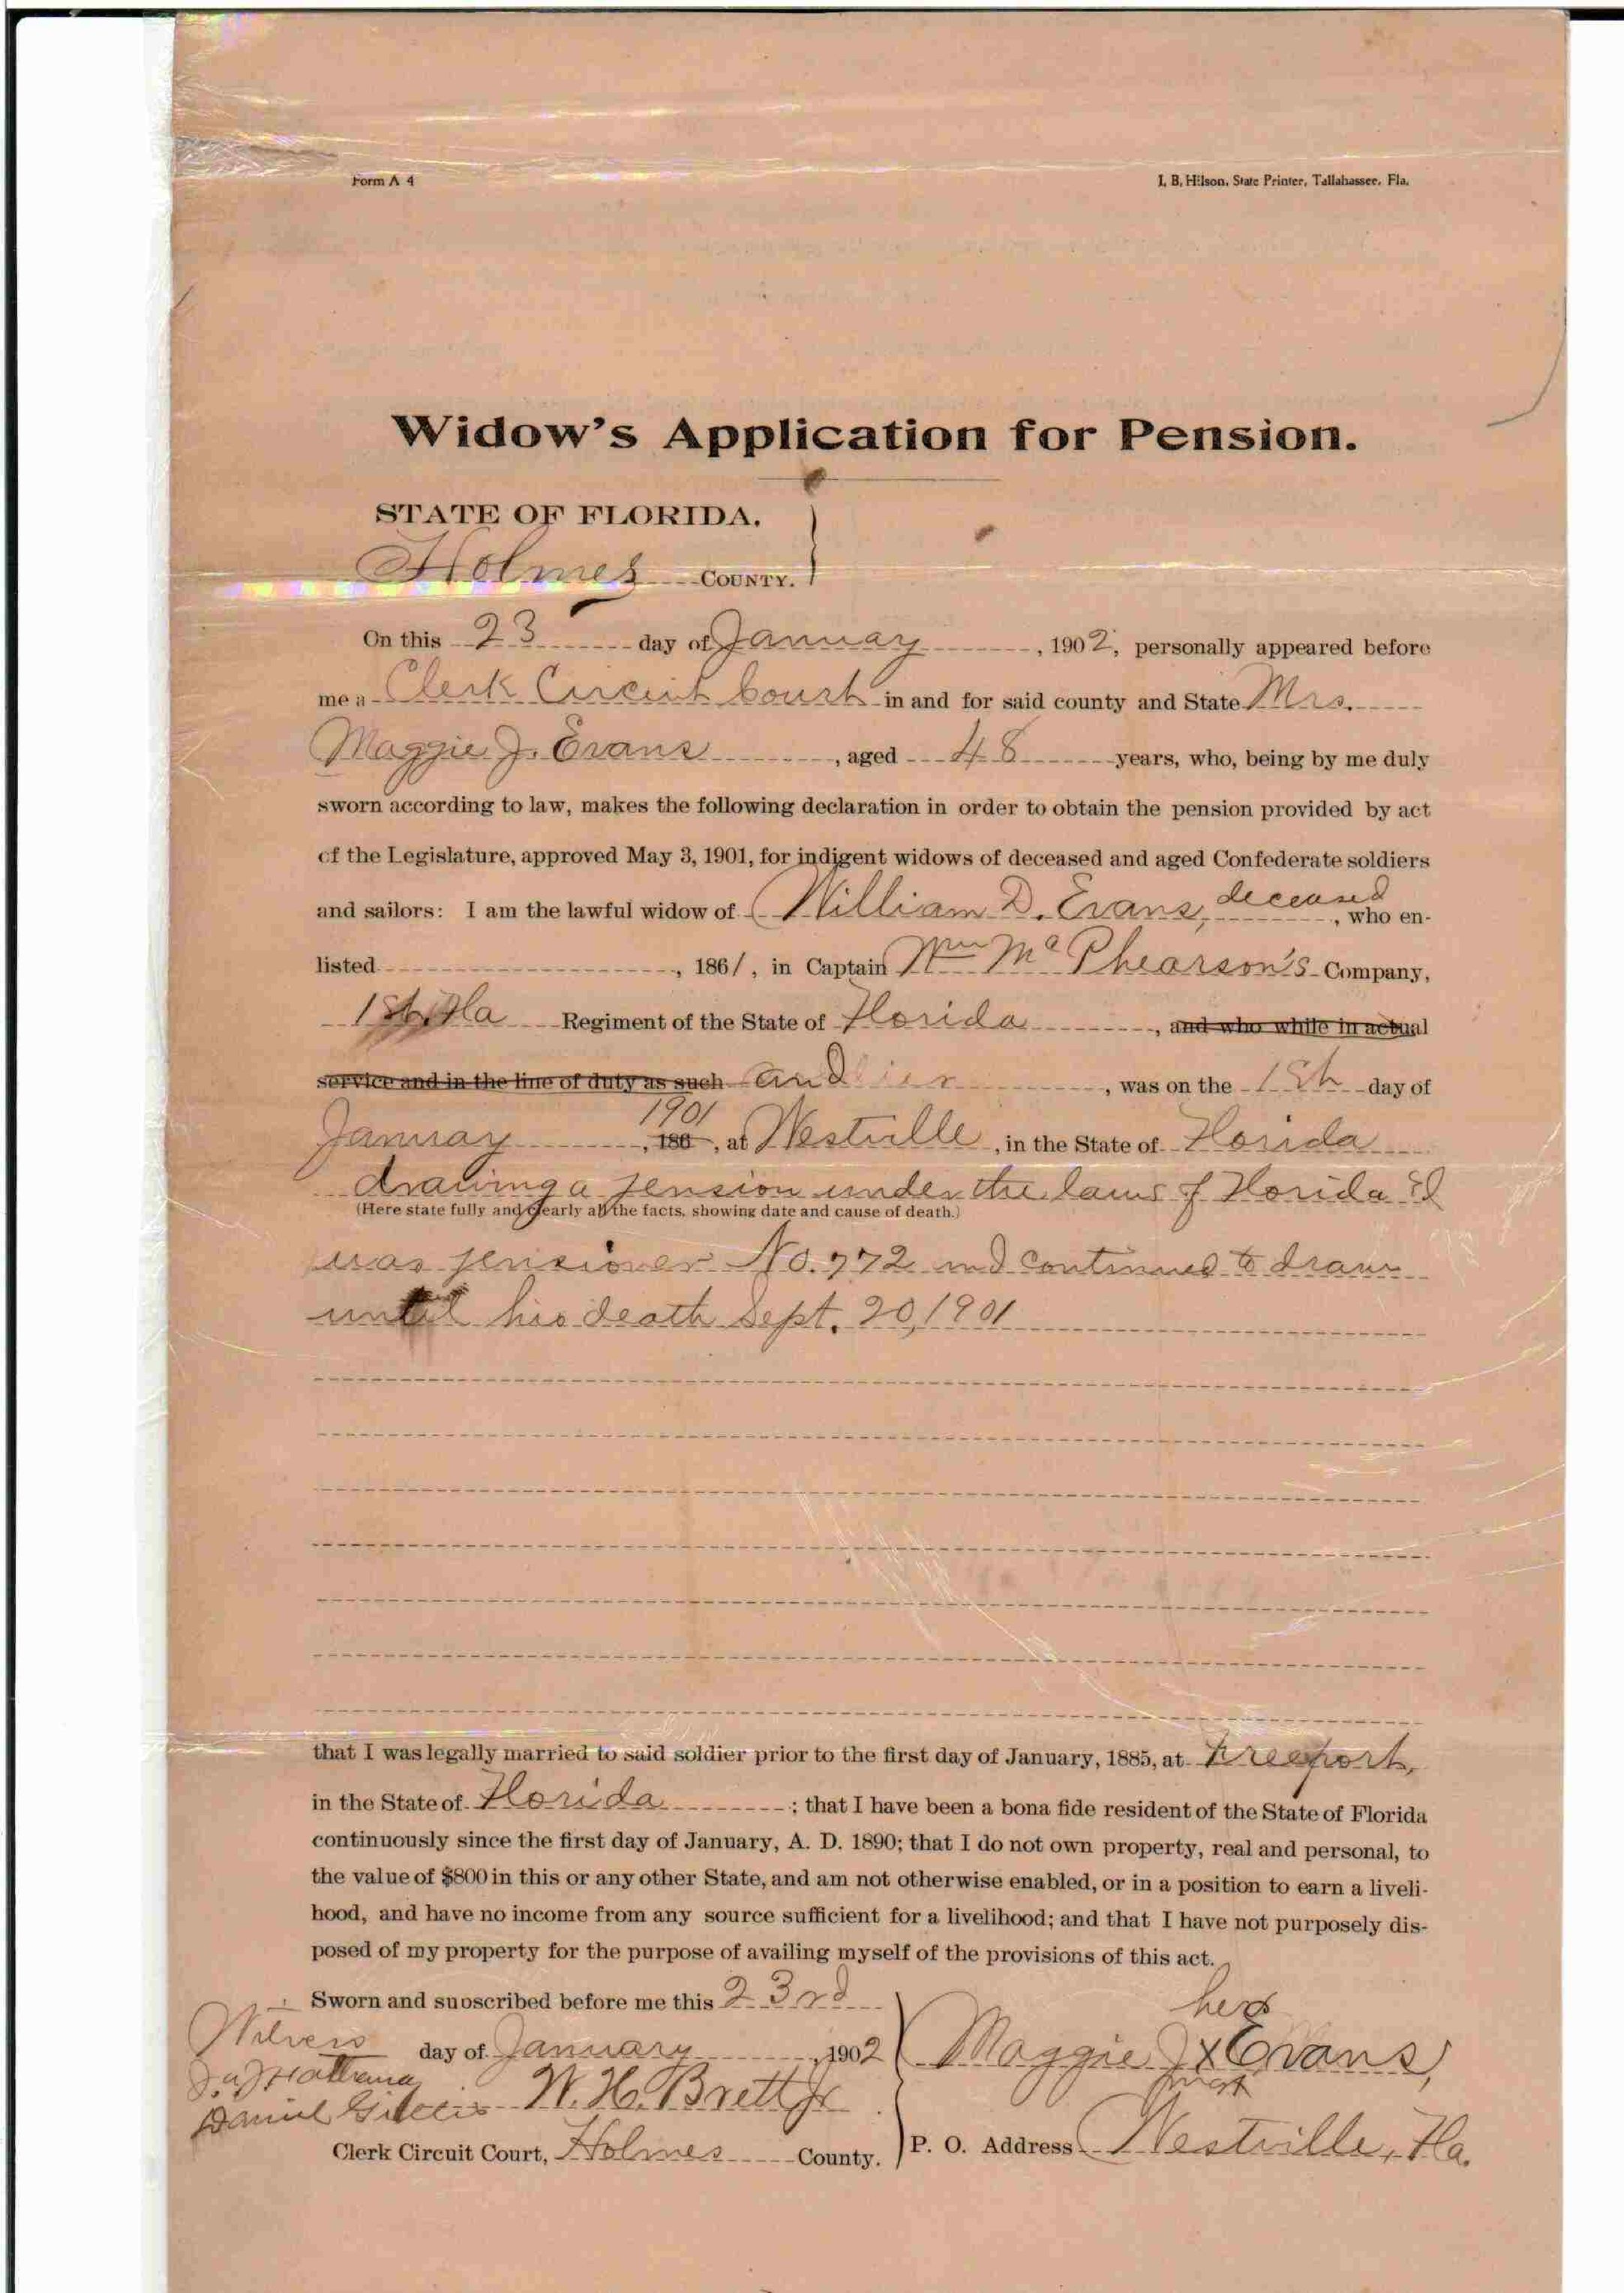 Form A 4
I. B. Hilson, State Printer, Tallahassee, Fla.
Widow's Application for Pension.
STATE OF FLORIDA.
Holmes COUNTY.
On this 23 day of January, 1902, personally appeared before
me a Clerk Circuit Court in and for said county and State Mrs.
Maggie J. Evans, aged 48 years, who, being by me duly
sworn according to law, makes the following declaration in order to obtain the pension provided by act
of the Legislature, approved May 3, 1901, for indigent widows of deceased and aged Confederate soldiers
and sailors: I am the lawful widow of William D. Evans, deceased, who en-
listed , 1861, in Captain Wm McPhearson's Company,
1st Fla Regiment of the State of Florida, and who while in actual
service and in the line of duty as such and , was on the 1st day of
January 1901, 186 , at Westville, in the State of Florida
drawing a pension under the laws of Florida &
(Here state fully and clearly all the facts, showing date and cause of death.)
was pensioner No. 772 and continued to draw
until his death Sept. 20, 1901
that I was legally married to said soldier prior to the first day of January, 1885, at Freeport,
in the State of Florida ; that I have been a bona fide resident of the State of Florida
continuously since the first day of January, A. D. 1890; that I do not own property, real and personal, to
the value of $800 in this or any other State, and am not otherwise enabled, or in a position to earn a liveli-
hood, and have no income from any source sufficient for a livelihood; and that I have not purposely dis-
posed of my property for the purpose of availing myself of the provisions of this act.
Sworn and subscribed before me this 23rd
her
Witness day of January, 1902 Maggie J x Evans,
mark
Daniel W. H. Brett Jr
Clerk Circuit Court, Holmes County. P. O. Address Westville, Fla.